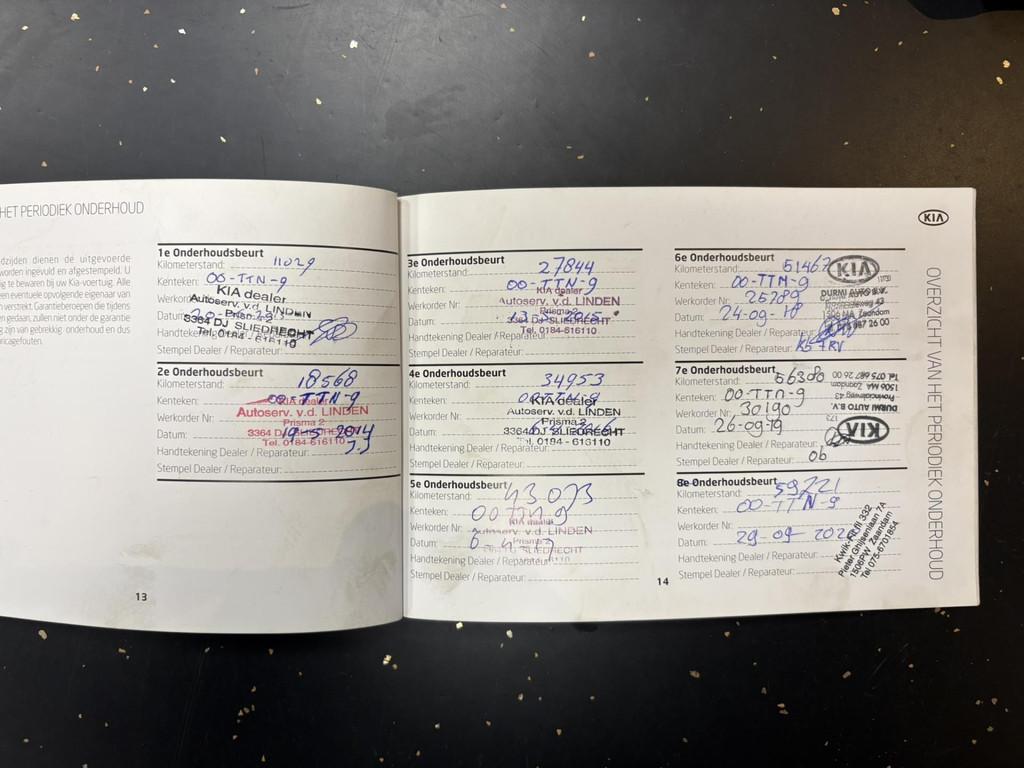 HET PERIODIEK ONDERHOUD
dzijden dienen de uitgevoerde
worden ingevuld en afgestempeld. U
ig te bewaren bij uw Kia-voertuig. Alle
een eventuele opvolgende eigenaar van
verstrekt. Garantieberoepen die tijdens
en gedaan, zullen niet onder de garantie
zijn van gebrekkig onderhoud en dus
ricagefouten.
1e Onderhoudsbeurt
Kilometerstand: 11029
Kenteken: 00-TTN-9
KIA dealer
Autoserv. v.d. LINDEN
Datum:
3364 DJ SLIEDRECHT
Tel. 0184-616110
2e Onderhoudsbeurt
Kilometerstand: 18568
Kenteken: 00-TTN-9
KIA dealer
Werkorder Nr: Autoserv. v.d. LINDEN
Prisma 2
Datum: 19-5-2014
Tel. 0184-616110
Handtekening Dealer / Reparateur:
Stempel Dealer / Reparateur:
13
3e Onderhoudsbeurt
Kilometerstand: 27844
Kenteken: 00-TTN-9
KIA dealer
Werkorder Nr: Autoserv. v.d. LINDEN
Datum:
3364 DJ SLIEDRECHT
Handtekening Dealer / Reparateur: Tel. 0184-616110
Stempel Dealer / Reparateur:
4e Onderhoudsbeurt
Kilometerstand: 34953
Kenteken: 00-TTN-9
KIA dealer
Werkorder Nr: Autoserv. v.d. LINDEN
Prisma 2
Datum: 3364 DJ SLIEDRECHT
Tel. 0184-616110
Handtekening Dealer / Reparateur:
Stempel Dealer / Reparateur:
5e Onderhoudsbeurt
Kilometerstand: 43073
Kenteken: 00TTN9
KIA dealer
Werkorder Nr: Autoserv. v.d. LINDEN
Prisma 2
Datum: SLIEDRECHT
Handtekening Dealer / Reparateur:
Stempel Dealer / Reparateur:
14
KIA
6e Onderhoudsbeurt
Kilometerstand: 51467
KIA
Kenteken: 00-TTN-9
Werkorder Nr: 25789
DURMI AUTO B.V.
Datum: 24-09-18
1506 MA Zaandam
Handtekening Dealer / Reparateur:
Stempel Dealer / Reparateur:
7e Onderhoudsbeurt
Kilometerstand: 56380
Kenteken: 00-TTN-9
Werkorder Nr: 30190
Datum: 26-09-19
Handtekening Dealer / Reparateur:
Stempel Dealer / Reparateur: 06
KIA
DURMI AUTO B.V.
Provincialeweg 43
1506 MA Zaandam
Tel. 075 687 26 00
8e Onderhoudsbeurt
Kilometerstand: 59721
Kenteken: 00-TTN-9
Werkorder Nr:
Datum: 29-09-2020
Handtekening Dealer / Reparateur:
Stempel Dealer / Reparateur:
Kwik-Fit fil 332
Pieter Ghijsenlaan 7A
1506PW Zaandam
Tel 075-6701854
OVERZICHT VAN HET PERIODIEK ONDERHOUD